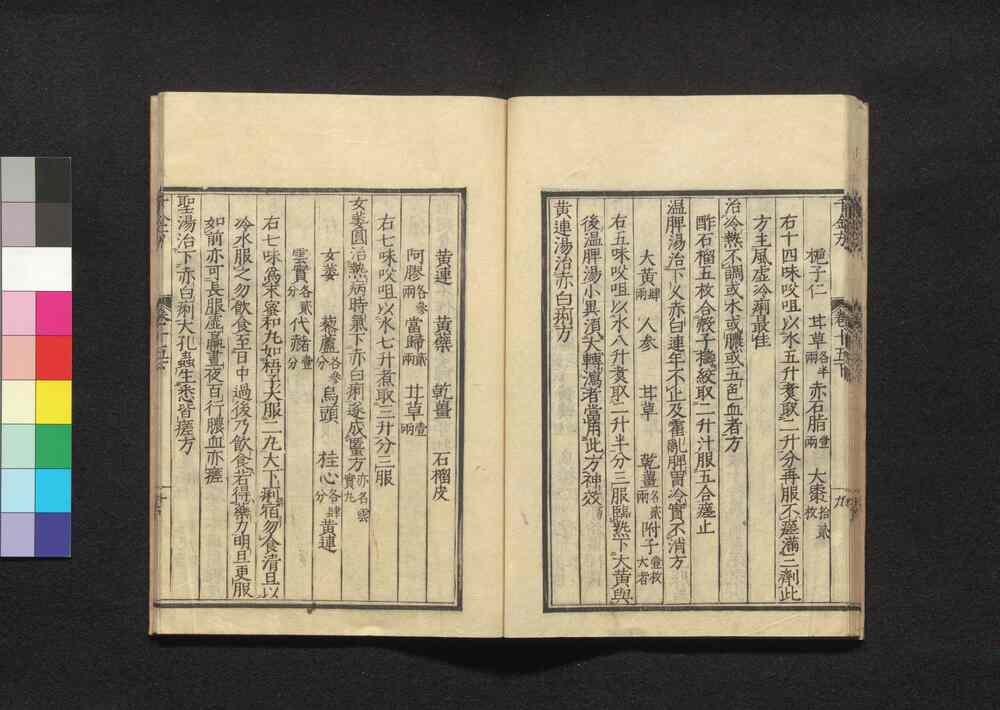 千金方 卷十五下 九
梔子仁 甘草各半兩 赤石脂壹兩 大棗拾貳枚
右十四味㕮咀以水五升煮取二升分再服不瘥滿三劑此
方主風虛冷痢最佳
治冷熱不調或水或膿或五色血者方
酢石榴五枚合殼子擣絞取二升汁服五合瘥止
溫脾湯治下久赤白連年不止及霍亂脾胃冷實不消方
大黃肆兩 人參 甘草 乾薑各貳兩 附子壹枚大者
右五味㕮咀以水八升煮取二升半分三服臨熟下大黃與
後溫脾湯小異須大轉瀉者當用此方神效
黃連湯治赤白痢方
黃連 黃蘗 乾薑 石榴皮
阿膠各參兩 當歸貳兩 甘草壹兩
右七味㕮咀以水七升煮取三升分三服
女萎圓治熱病時氣下赤白痢遂成䘌方亦名雲實丸
女萎 藜蘆各參分 烏頭 桂心各肆分 黃連
雲實各貳分 代赭壹分
右七味爲末蜜和丸如梧子大服二丸大下痢宿勿食清旦以
冷水服之勿飲食至日中過後乃飲食若得藥力明旦更服
如前亦可長服虛羸晝夜百行膿血亦瘥
聖湯治下赤白痢大孔蟲生悉皆瘥方